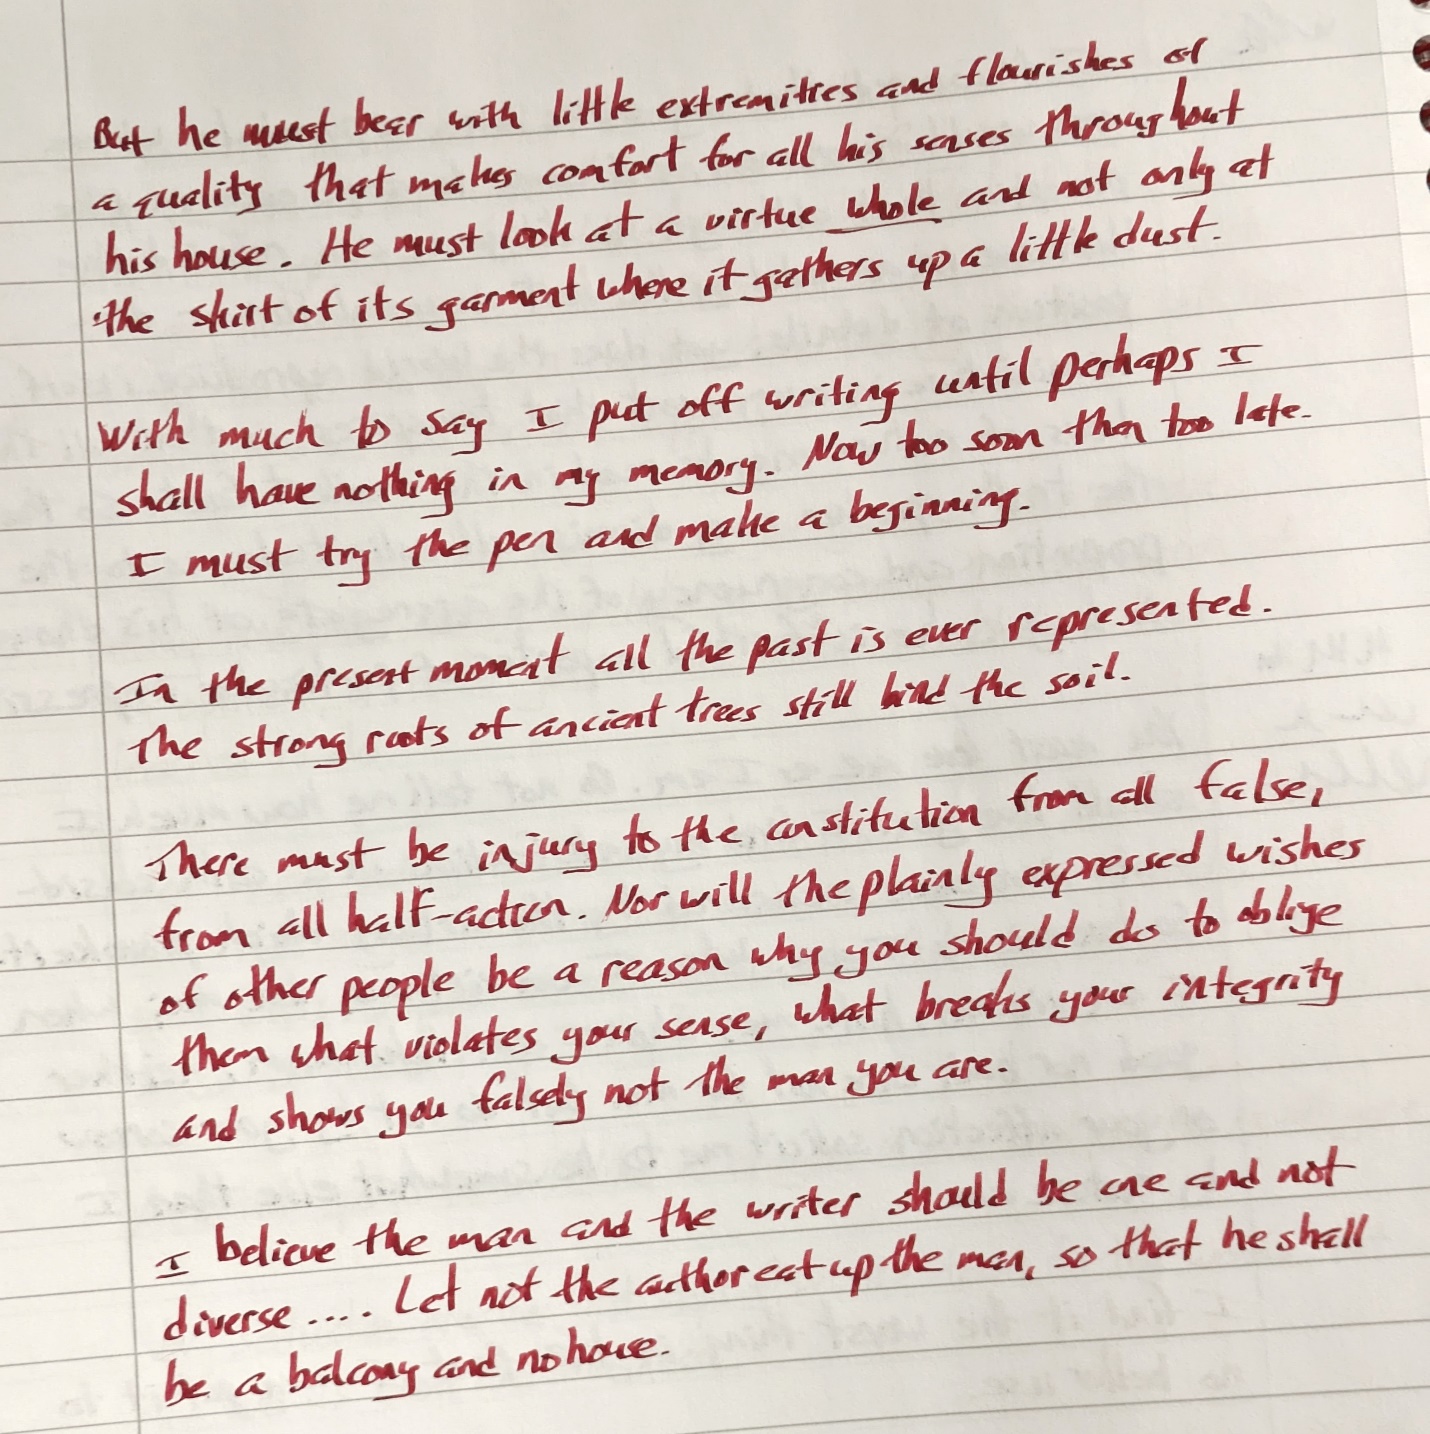 But he must bear with little extremities and flourishes of
a quality that makes comfort for all his senses throughout
his house. He must look at a virtue whole and not only at
the skirt of its garment where it gathers up a little dust.
With much to say I put off writing until perhaps I
shall have nothing in my memory. Now too soon then too late.
I must try the pen and make a beginning.
In the present moment all the past is ever represented.
The strong roots of ancient trees still bind the soil.
There must be injury to the constitution from all false,
from all half-action. Nor will the plainly expressed wishes
of other people be a reason why you should do to oblige
them what violates your sense, what breaks your integrity
and shows you falsely not the man you are.
I believe the man and the writer should be one and not
diverse.... Let not the author eat up the man, so that he shall
be a balcony and no house.